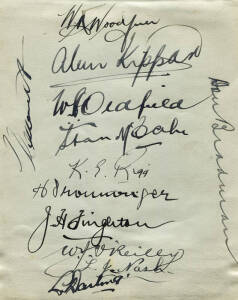 W M Woodfull
Alan Kippax
W A Oldfield
Stan McCabe
K. E. Rigg
H Ironmonger
J H Fingleton
W J O'Reilly
L. J. Nash.
Don Bradman